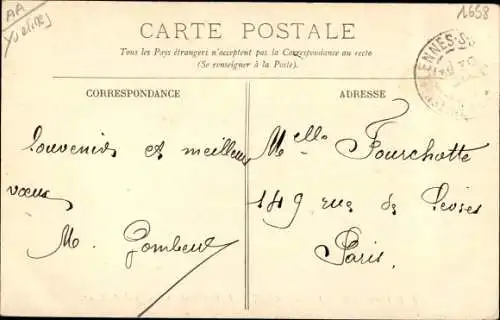 AA
Yvelines
1658
CARTE POSTALE
Tous les Pays étrangers n'acceptent pas la Correspondance au recto
(Se renseigner à la Poste).
CORRESPONDANCE
Souvenirs et meilleurs
vœux
M.
ADRESSE
Melle Fourchotte
149 rue de
Paris.